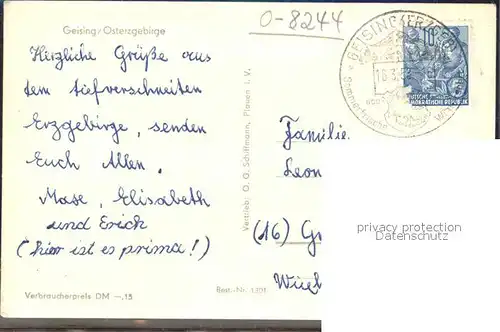 Geising/Osterzgebirge
O-8244
GEISING (ERZGEB)
10
DEUTSCHE
DEMOKRATISCHE REPUBLIK
Herzliche Grüße aus
dem tiefverschneiten
Erzgebirge, senden
Euch Allen.
Mase, Elisabeth
und Erich
(hier ist es prima!)
Vertrieb: O. G. Schiffmann, Plauen i. V.
Familie
Leon
(16) G
privacy protection
Datenschutz
Verbraucherpreis DM —,15
Best.-Nr. 1301